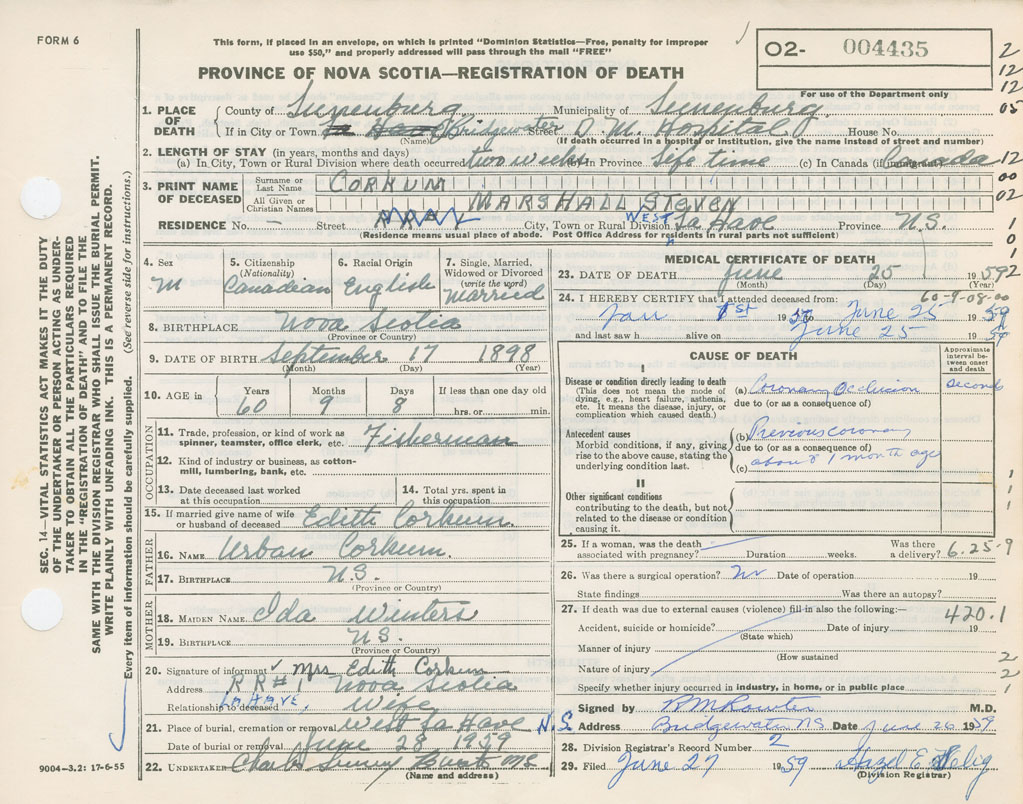 FORM 6
This form, if placed in an envelope, on which is printed "Dominion Statistics—Free, penalty for improper
use $50," and properly addressed will pass through the mail "FREE"
O2- 004435
For use of the Department only
2
12
12
05
PROVINCE OF NOVA SCOTIA—REGISTRATION OF DEATH
1. PLACE OF DEATH
County of Lunenburg Municipality of Lunenburg
If in City or Town Bridgewater Street D. M. Hospital House No.
(Name) (If death occurred in a hospital or institution, give the name instead of street and number)
2. LENGTH OF STAY (in years, months and days)
(a) In City, Town or Rural Division where death occurred two weeks In Province Life time (c) In Canada (if immigrant) Canada
12
00
02
3. PRINT NAME OF DECEASED
Surname or Last Name CORKUM
All Given or Christian Names MARSHALL STEVEN
RESIDENCE No. — Street City, Town or Rural Division WEST La Have Province N.S.
(Residence means usual place of abode. Post Office Address for residents in rural parts not sufficient)
1
0
1
4. Sex M
5. Citizenship (Nationality) Canadian
6. Racial Origin English
7. Single, Married, Widowed or Divorced (write the word) Married
8. BIRTHPLACE Nova Scotia
(Province or Country)
9. DATE OF BIRTH September 17 1898
(Month) (Day) (Year)
10. AGE in Years 60 Months 9 Days 8 If less than one day old hrs. or min.
OCCUPATION
11. Trade, profession, or kind of work as spinner, teamster, office clerk, etc. Fisherman
12. Kind of industry or business, as cotton-mill, lumbering, bank, etc.
13. Date deceased last worked at this occupation
14. Total yrs. spent in this occupation
15. If married give name of wife or husband of deceased Edith Corkum
FATHER
16. NAME Urban Corkum.
17. BIRTHPLACE N.S.
(Province or Country)
MOTHER
18. MAIDEN NAME Ida Winters
19. BIRTHPLACE N.S.
(Province or Country)
20. Signature of informant Mrs Edith Corkum
Address RR#1 Nova Scotia
LaHAVE,
Relationship to deceased Wife
21. Place of burial, cremation or removal West La Have N.S
Date of burial or removal June 28 1959
22. UNDERTAKER
(Name and address)
9004-3.2: 17-6-55
MEDICAL CERTIFICATE OF DEATH
23. DATE OF DEATH June 25 1959
(Month) (Day) (Year)
2
60-9-08-00
24. I HEREBY CERTIFY that I attended deceased from:
Jan 1st 19 to June 25 1959
and last saw h alive on June 25 1959
CAUSE OF DEATH
Approximate interval between onset and death
I
Disease or condition directly leading to death
(This does not mean the mode of dying, e.g., heart failure, asthenia, etc. It means the disease, injury, or complication which caused death.)
(a) Coronary Occlusion second
due to (or as a consequence of)
Antecedent causes
Morbid conditions, if any, giving rise to the above cause, stating the underlying condition last.
(b) Previous coronary
due to (or as a consequence of)
(c) about 1 month ago
II
Other significant conditions
contributing to the death, but not related to the disease or condition causing it.
1
1
1
25. If a woman, was the death associated with pregnancy? Duration weeks. Was there a delivery? 6-25-9
26. Was there a surgical operation? no Date of operation 19
State findings Was there an autopsy?
27. If death was due to external causes (violence) fill in also the following:—
420.1
Accident, suicide or homicide? Date of injury 19
(State which)
Manner of injury
(How sustained
Nature of injury
2
2
1
Specify whether injury occurred in industry, in home, or in public place
Signed by M.D.
Address Bridgewater NS Date June 26 1959
28. Division Registrar's Record Number 2
29. Filed June 27 1959 Hazel E.
(Division Registrar)
SEC. 14—VITAL STATISTICS ACT MAKES IT THE DUTY
OF THE UNDERTAKER OR PERSON ACTING AS UNDER-
TAKER TO OBTAIN ALL THE PARTICULARS REQUIRED
IN THE "REGISTRATION OF DEATH" AND TO FILE THE
SAME WITH THE DIVISION REGISTRAR WHO SHALL ISSUE THE BURIAL PERMIT.
WRITE PLAINLY WITH UNFADING INK. THIS IS A PERMANENT RECORD.
Every item of information should be carefully supplied. (See reverse side for instructions.)